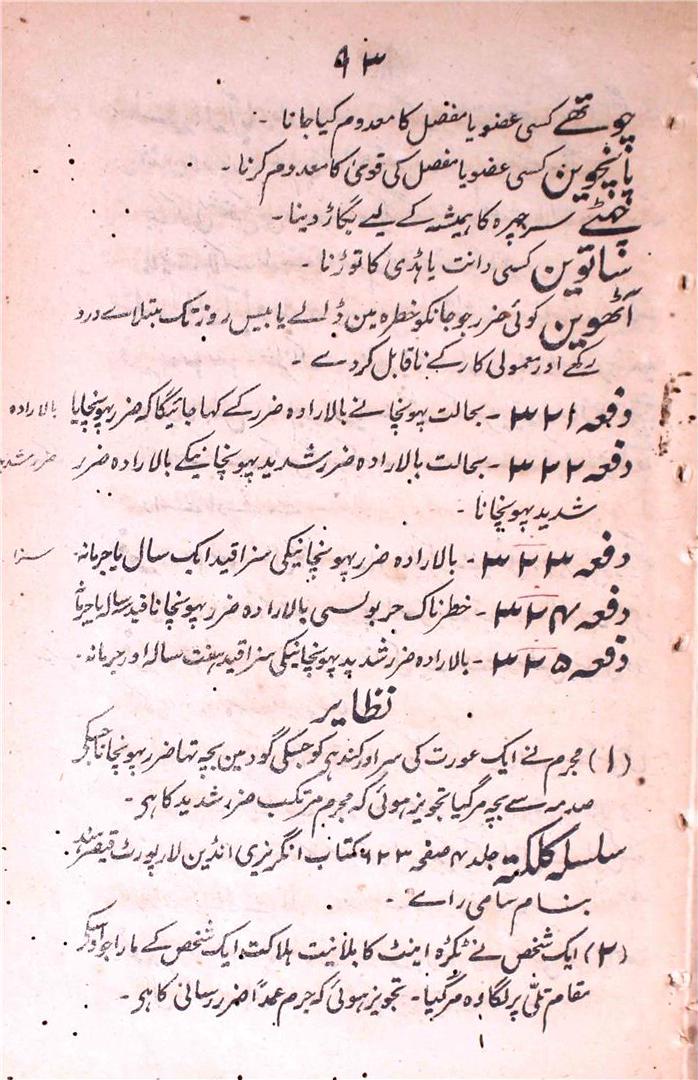 ۹۳
چوتھے کسی عضو یا مفصل کا معدوم کیا جانا ۔
پانچوین کسی عضو یا مفصل کی قویٰ کا معدوم کرنا ۔
چھٹے سر چہرہ کا ہمیشہ کے لیے بگاڑ دینا ۔
ساتوین کسی دانت یا ہڈی کا توڑنا ۔
آٹھوین کوئی ضرر جو جانکو خطرہ مین ڈالے یا بیس روز تک مبتلاے درد
رکھے اور معمولی کار کے ناقابل کر دے ۔
دفعہ ۳۲۱ ۔ بحالت پہونچانے بالارادہ ضرر کے کہا جائیگا کہ ضرر پہونچایا بالارادہ
دفعہ ۳۲۲ ۔ بحالت بالارادہ ضرر شدید پہونچانیکے بالارادہ ضرر ضرر شدید
شدید پہونچانا ۔
دفعہ ۳۲۳ ۔ بالارادہ ضرر پہونچانیکی سزا قید ایک سال یا جرمانہ۔ سزا
دفعہ ۳۲۴ ۔ خطرناک حربوںسی بالارادہ ضرر پہونچانا قید سہ سالہ یا جرمانہ
دفعہ ۳۲۵ ۔ بالارادہ ضرر شدید پہونچانیکی سزا قید ہفت سالہ اور جرمانہ ۔
نظایر
(۱) مجرم نے ایک عورت کی سر اور کندہی کو جسکی گود مین بچہ تھا ضرر پہونچانا جسکی
صدمہ سے بچہ مر گیا تجویز ہوئی کہ مجرم مرتکب ضرر شدید کا ہی ۔
سلسلہ کلکتہ جلد ۴ صفحہ ۶۲۳ کتاب انگریزی انڈین لا رپورٹ قیصر ہند
بنام سامی راے ۔
(۲) ایک شخص نے ٹکڑہ اینٹ کا بلا نیت ہلاکت ایک شخص کے مارا جو اوسکی
مقام تلّی پر لگا وہ مر گیا ۔ تجویز ہوئی کہ جرم عمداً ضرر رسانی کا ہی ۔